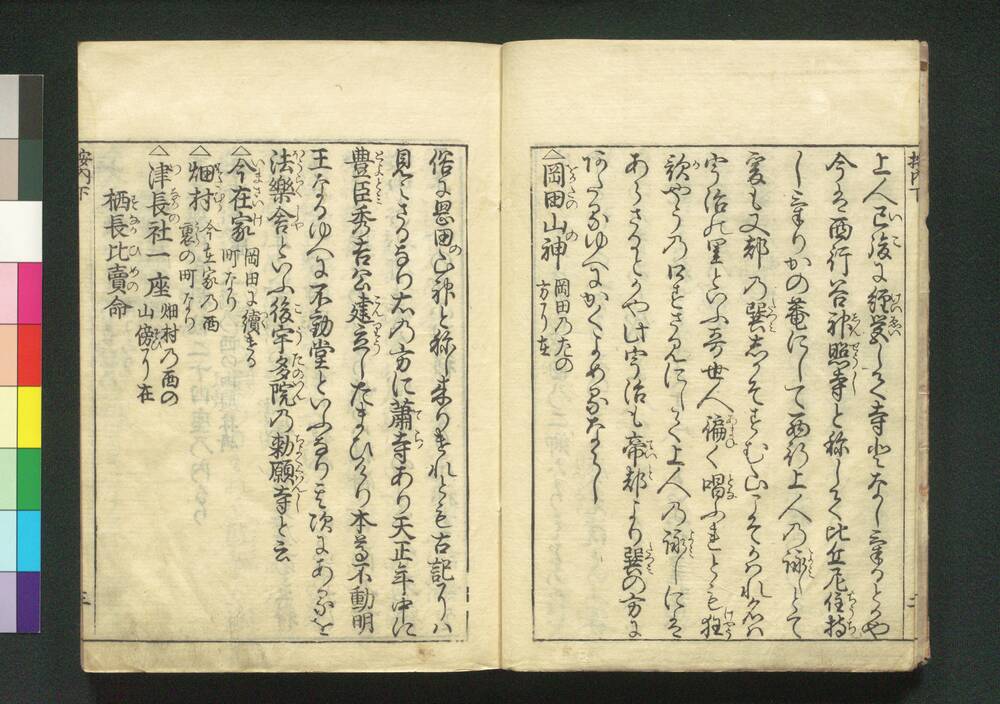 上人已後に経営して寺となし奉るとかや
今は西行谷神照寺と称して比丘尼住持
し奉りかの菴にして西行上人の詠とて
爰も又都の巽しかそすむ山こそかはれ名は
宇治の里といふ哥世人徧く唱ふれとも狂
歌やうの口すさみにして上人の詠しには
あらさるとかや此宇治も帝都より巽の方に
あたるゆへにかくよめるなるへし
△岡田山神 岡田の左の
方に在
俗に思田の山神と称し来りけれとも古記には
見へさるなり左の方に蕭寺あり天正年中に
豊臣秀吉公建立したまひけり本尊不動明
王なるゆへに不動堂といふなり其次にあるを
法樂舎といふ後宇多院の勅願寺と云
△今在家 岡田に續ける
町なり
△畑村 今在家の西
裏の町なり
△津長社一座 畑村の西の
山傍に在
栖長比賣命